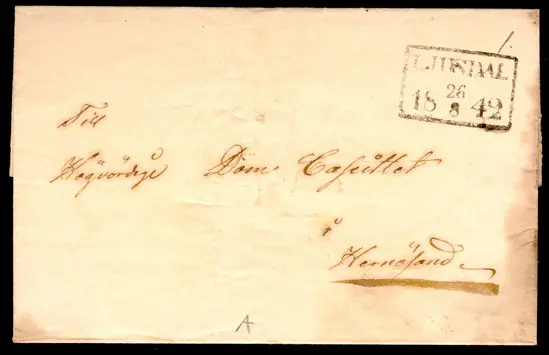 1.
LJUSDAL
26
18 8 42
Till
Högvördige Dom. Capittlet
i
Hernösand
A